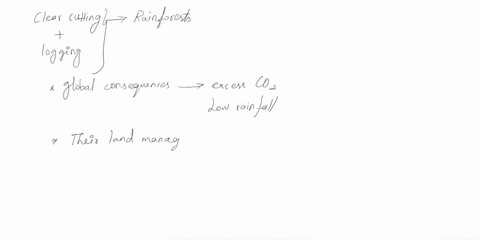 Clear cutting → Rainforests
+
logging
* global consequences → excess CO₂
Low rainfall
* Their land manag